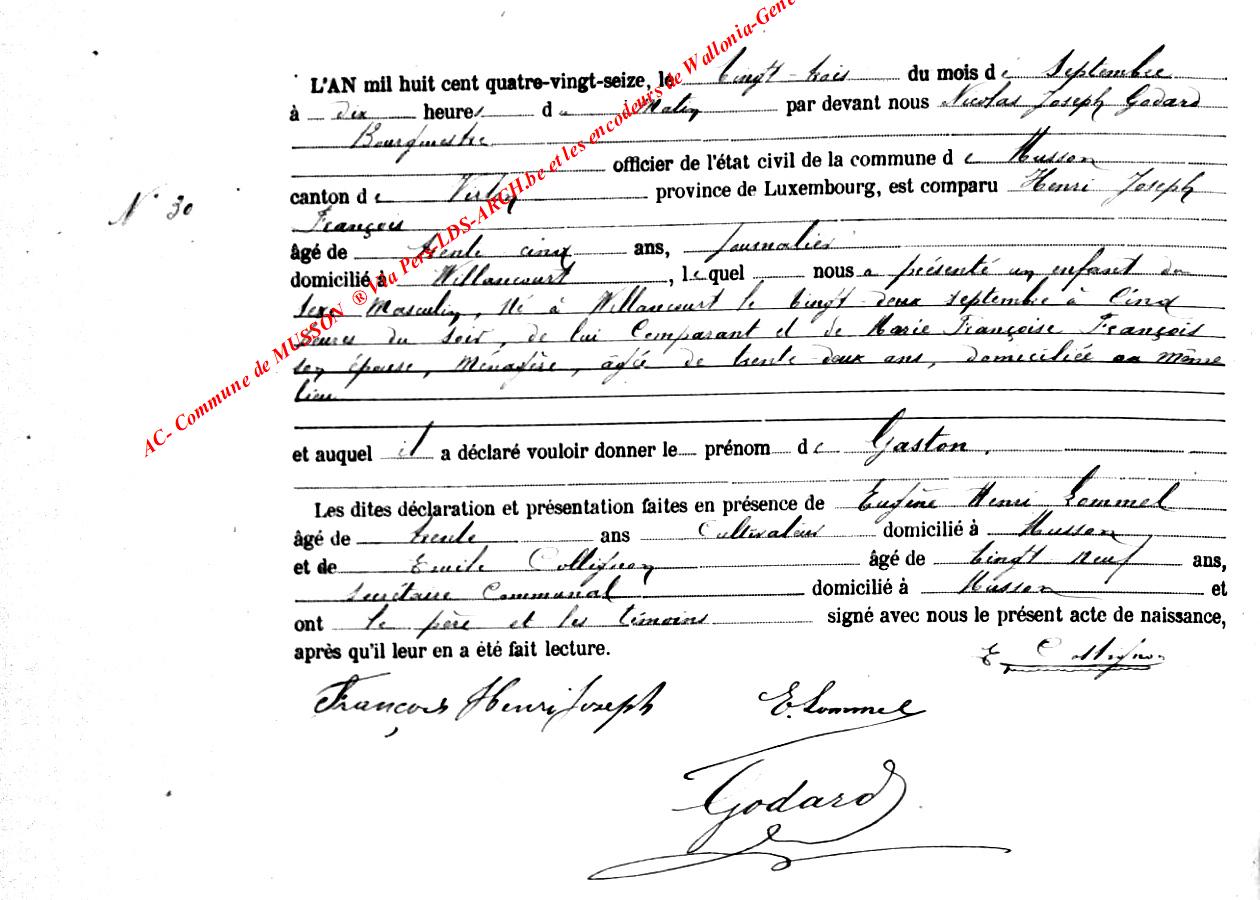 L'AN mil huit cent quatre-vingt-seize, le vingt-trois du mois de Septembre
à dix heures du Matin par devant nous Nicolas Joseph Godard
Bourgmestre
officier de l'état civil de la commune de Musson
canton de Virton province de Luxembourg, est comparu Henri Joseph
N° 30
François
âgé de trente cinq ans, journalier
domicilié à Willancourt, lequel nous a présenté un enfant du
sexe Masculin, Né à Willancourt le vingt deux septembre à Cinq
heures du soir, de lui Comparant et de Marie Françoise François
son épouse, Ménagère, agée de trente deux ans, domiciliée au même
lieu
et auquel il a déclaré vouloir donner le prénom de Gaston.
Les dites déclaration et présentation faites en présence de Eugène Henri Lommel
âgé de trente ans Cultivateur domicilié à Musson
et de Emile Collignon âgé de vingt neuf ans,
secrétaire Communal domicilié à Musson et
ont le père et les témoins signé avec nous le présent acte de naissance,
après qu'il leur en a été fait lecture.
E Collignon
François Henri Joseph E. Lommel
Godard
AC- Commune de MUSSON ® Via Pers LDS-ARCH.be et les encodeurs de Wallonia-Gene